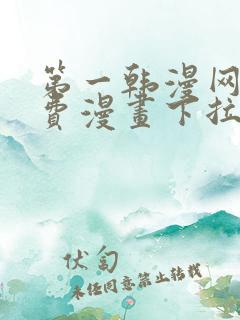 第一韩漫网
费漫畫下拉
伏匄
未经同意禁止转载